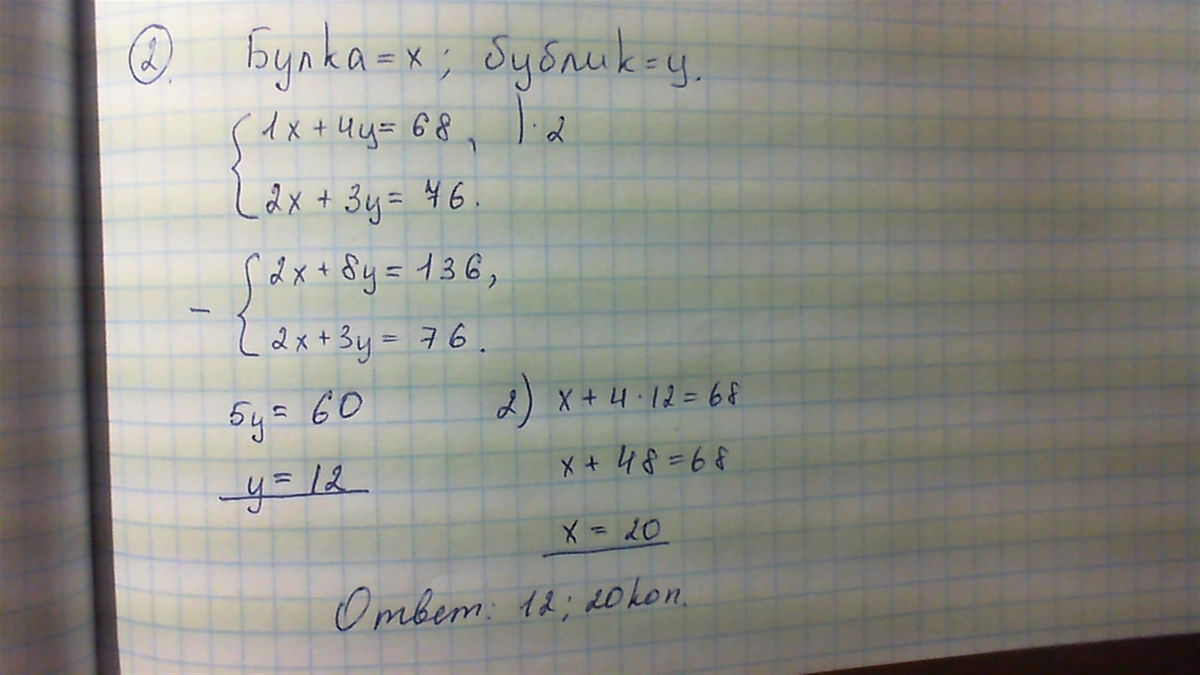 2. Булка = x; бублик = y.
{ 1x + 4y = 68, | · 2
2x + 3y = 76.
- { 2x + 8y = 136,
2x + 3y = 76.
5y = 60
y = 12
2) x + 4 · 12 = 68
x + 48 = 68
x = 20
Ответ: 12; 20 коп.